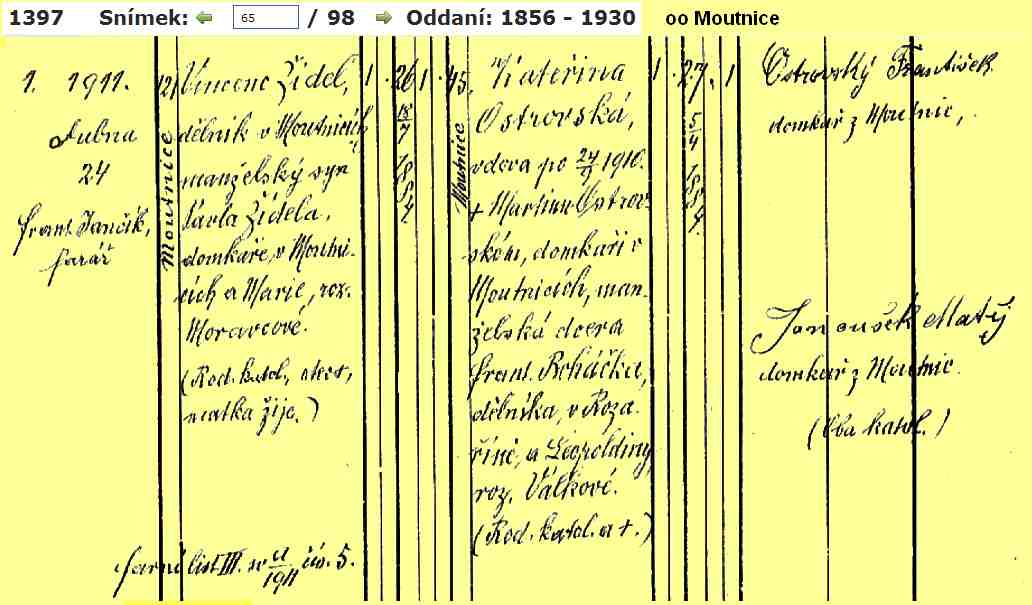 1397 Snímek: 65 / 98 Oddaní: 1856 - 1930 oo Moutnice
1. 1911.
Dubna
24
Frant. Jančík,
farář
121
Moutnice
Vincenc Žídel,
dělník v Moutnicích
manželský syn
Pavla Žídela,
domkáře, v Moutni-
cích a Marie, roz.
Moravcové.
(Rod. katol., otec +,
matka žije.)
1 . 26 1 .
18/7
1884
45.
Moutnice
Kateřina
Ostrovská,
vdova po 24/9 1910.
+ Martinu Ostrov-
ském, domkáři v
Moutnicích, man-
želská dcera
Frant. Řeháčka,
dělníka, v Roza-
říně, a Leopoldiny,
roz. Válkové.
(Rod. katol. a +.)
1 . 27 . 1
5/4
1884.
Ostrovský František
domkář z Moutnic,
Janoušek Matěj
domkář z Moutnic.
(Oba katol.)
farní list III. sv 11/1911 čís. 5.